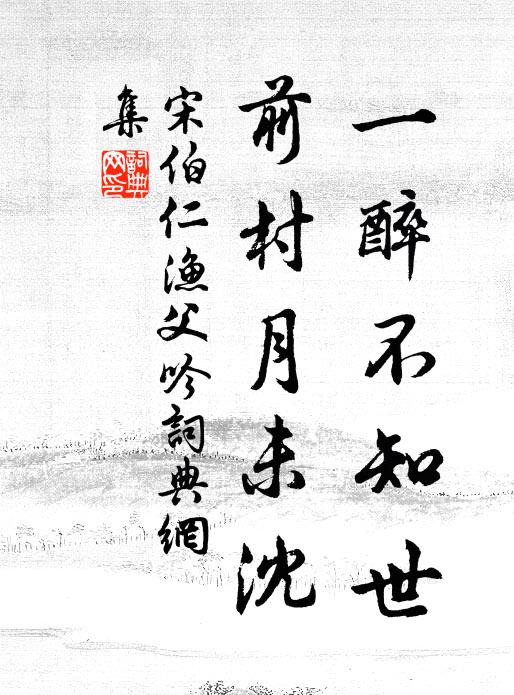 一醉不知世
前村月未沈
宋伯仁漁父吟詞典網
集
詞典网印